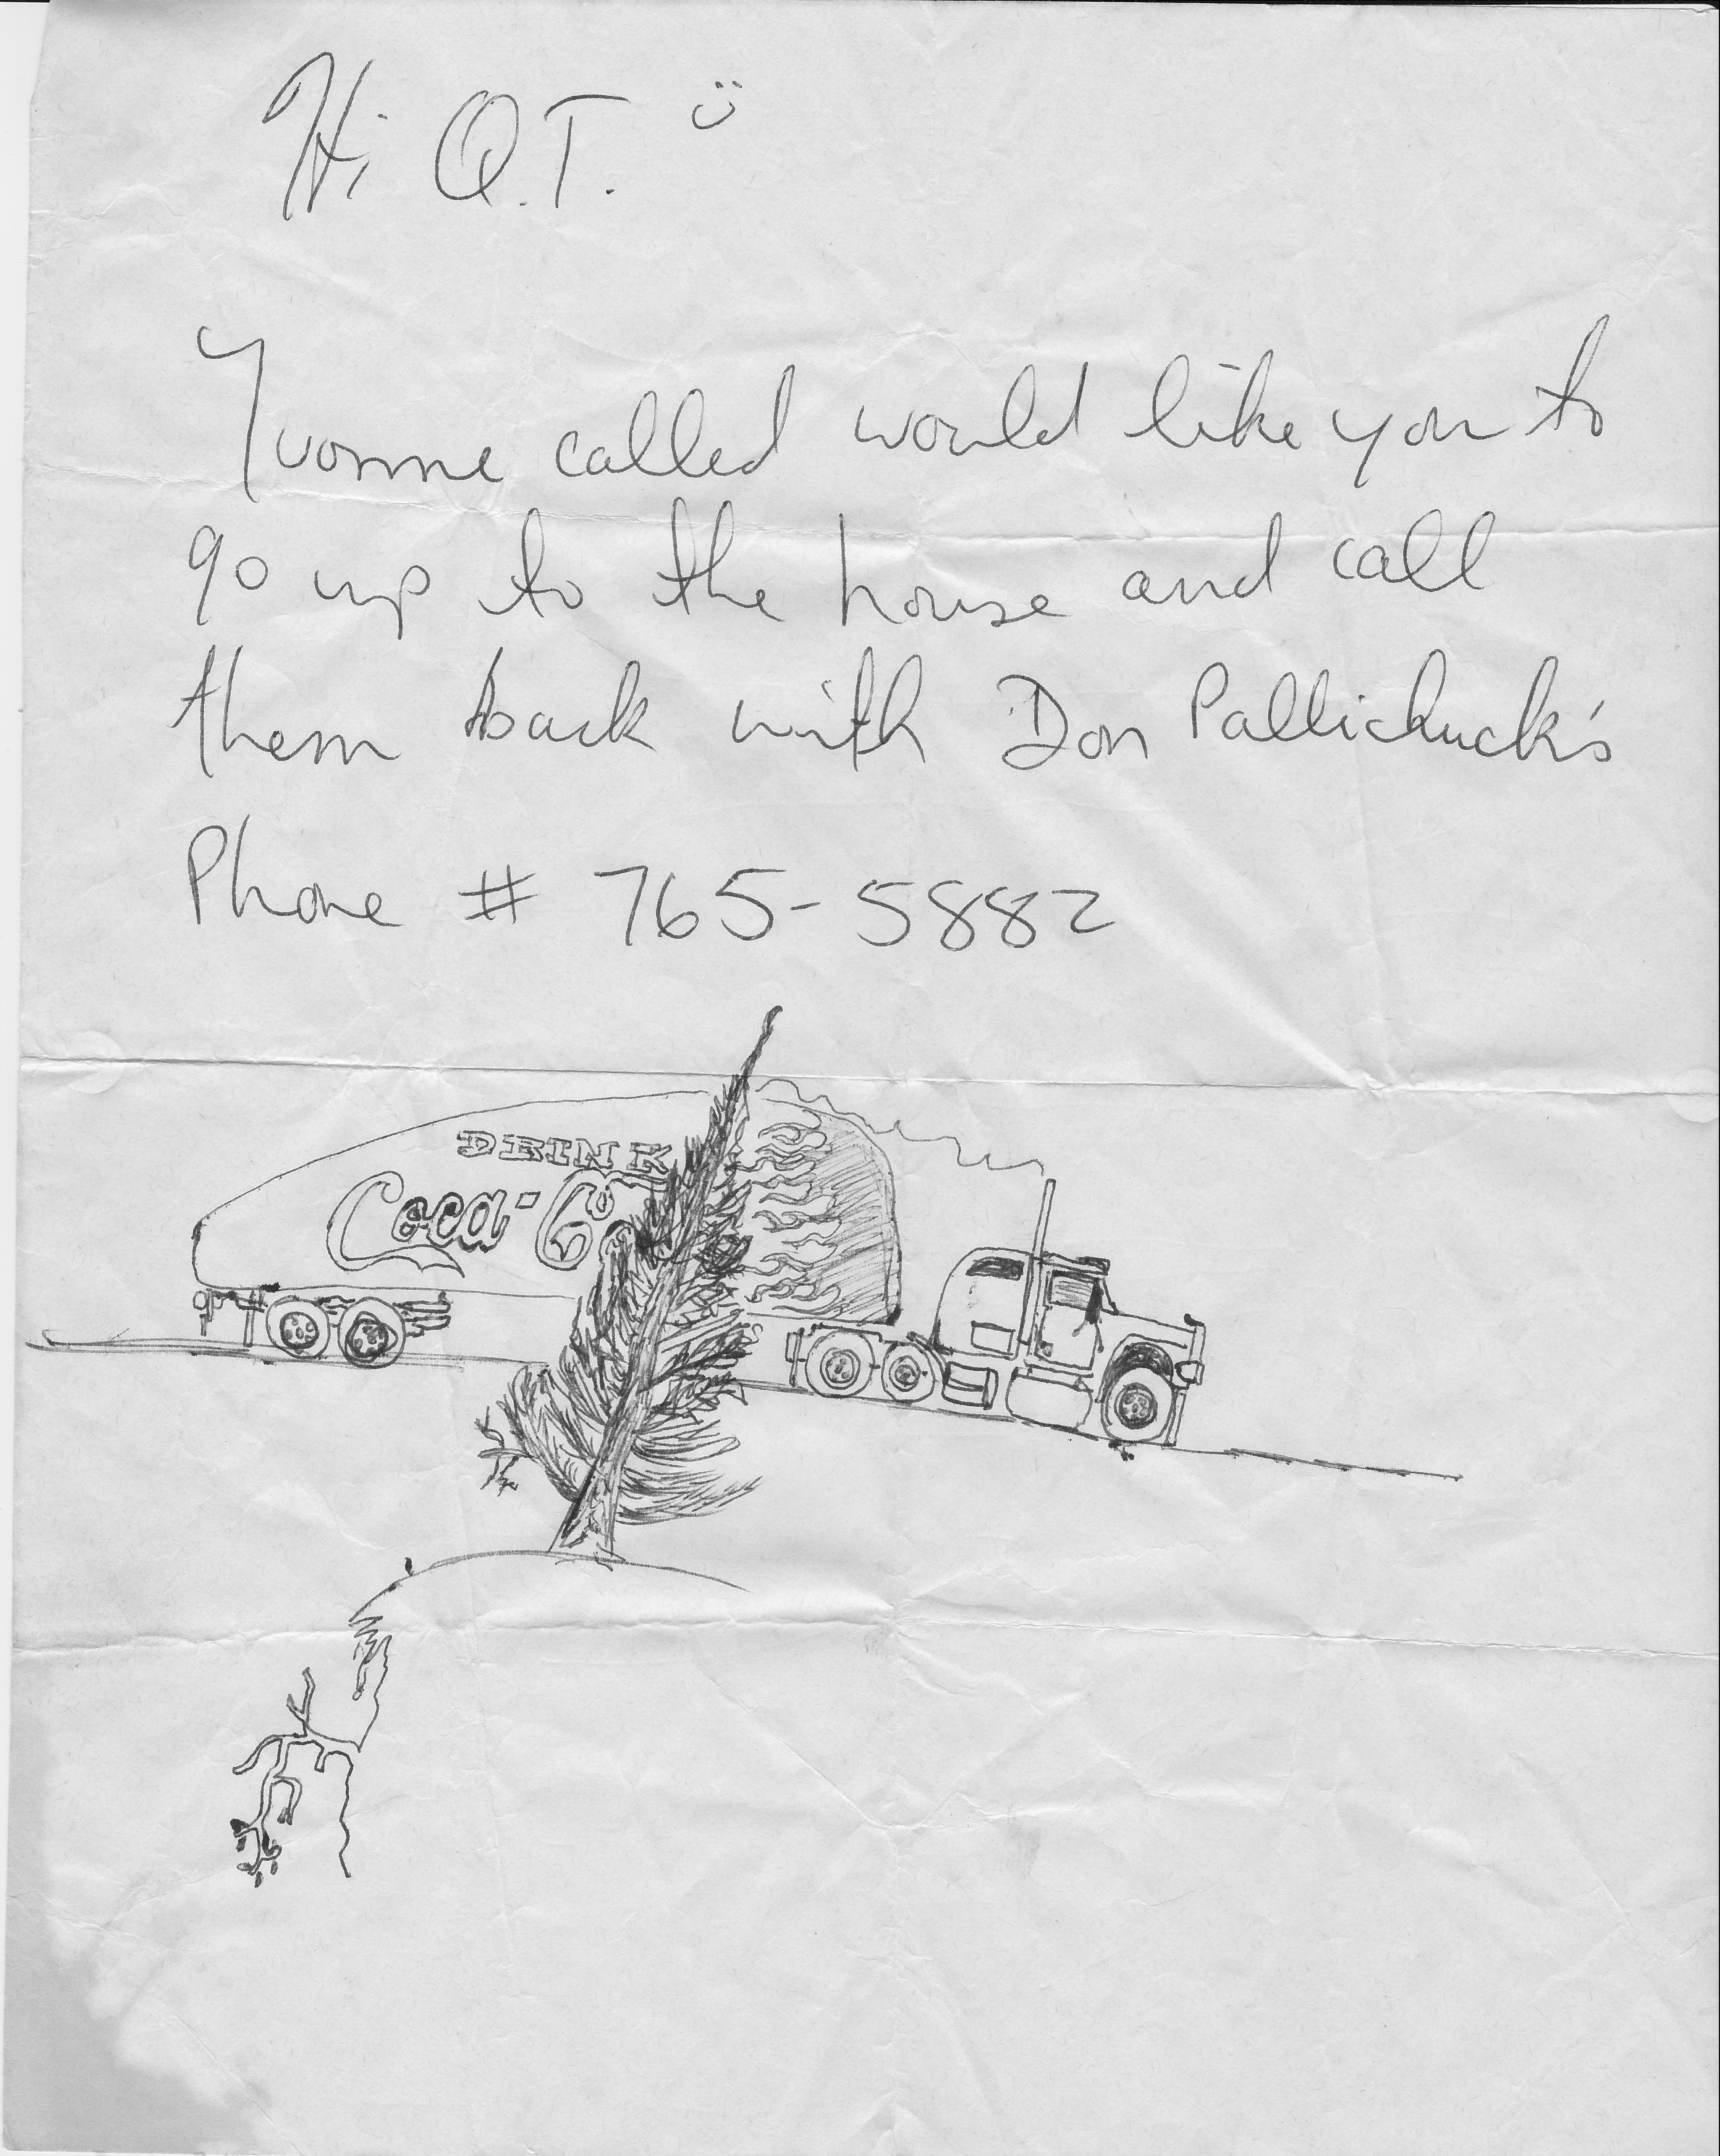 Hi Q.T.
Yvonne called would like you to
go up to the house and call
them back with Don Pallichuck's
Phone # 765-5882
DRINK
Coca-Co